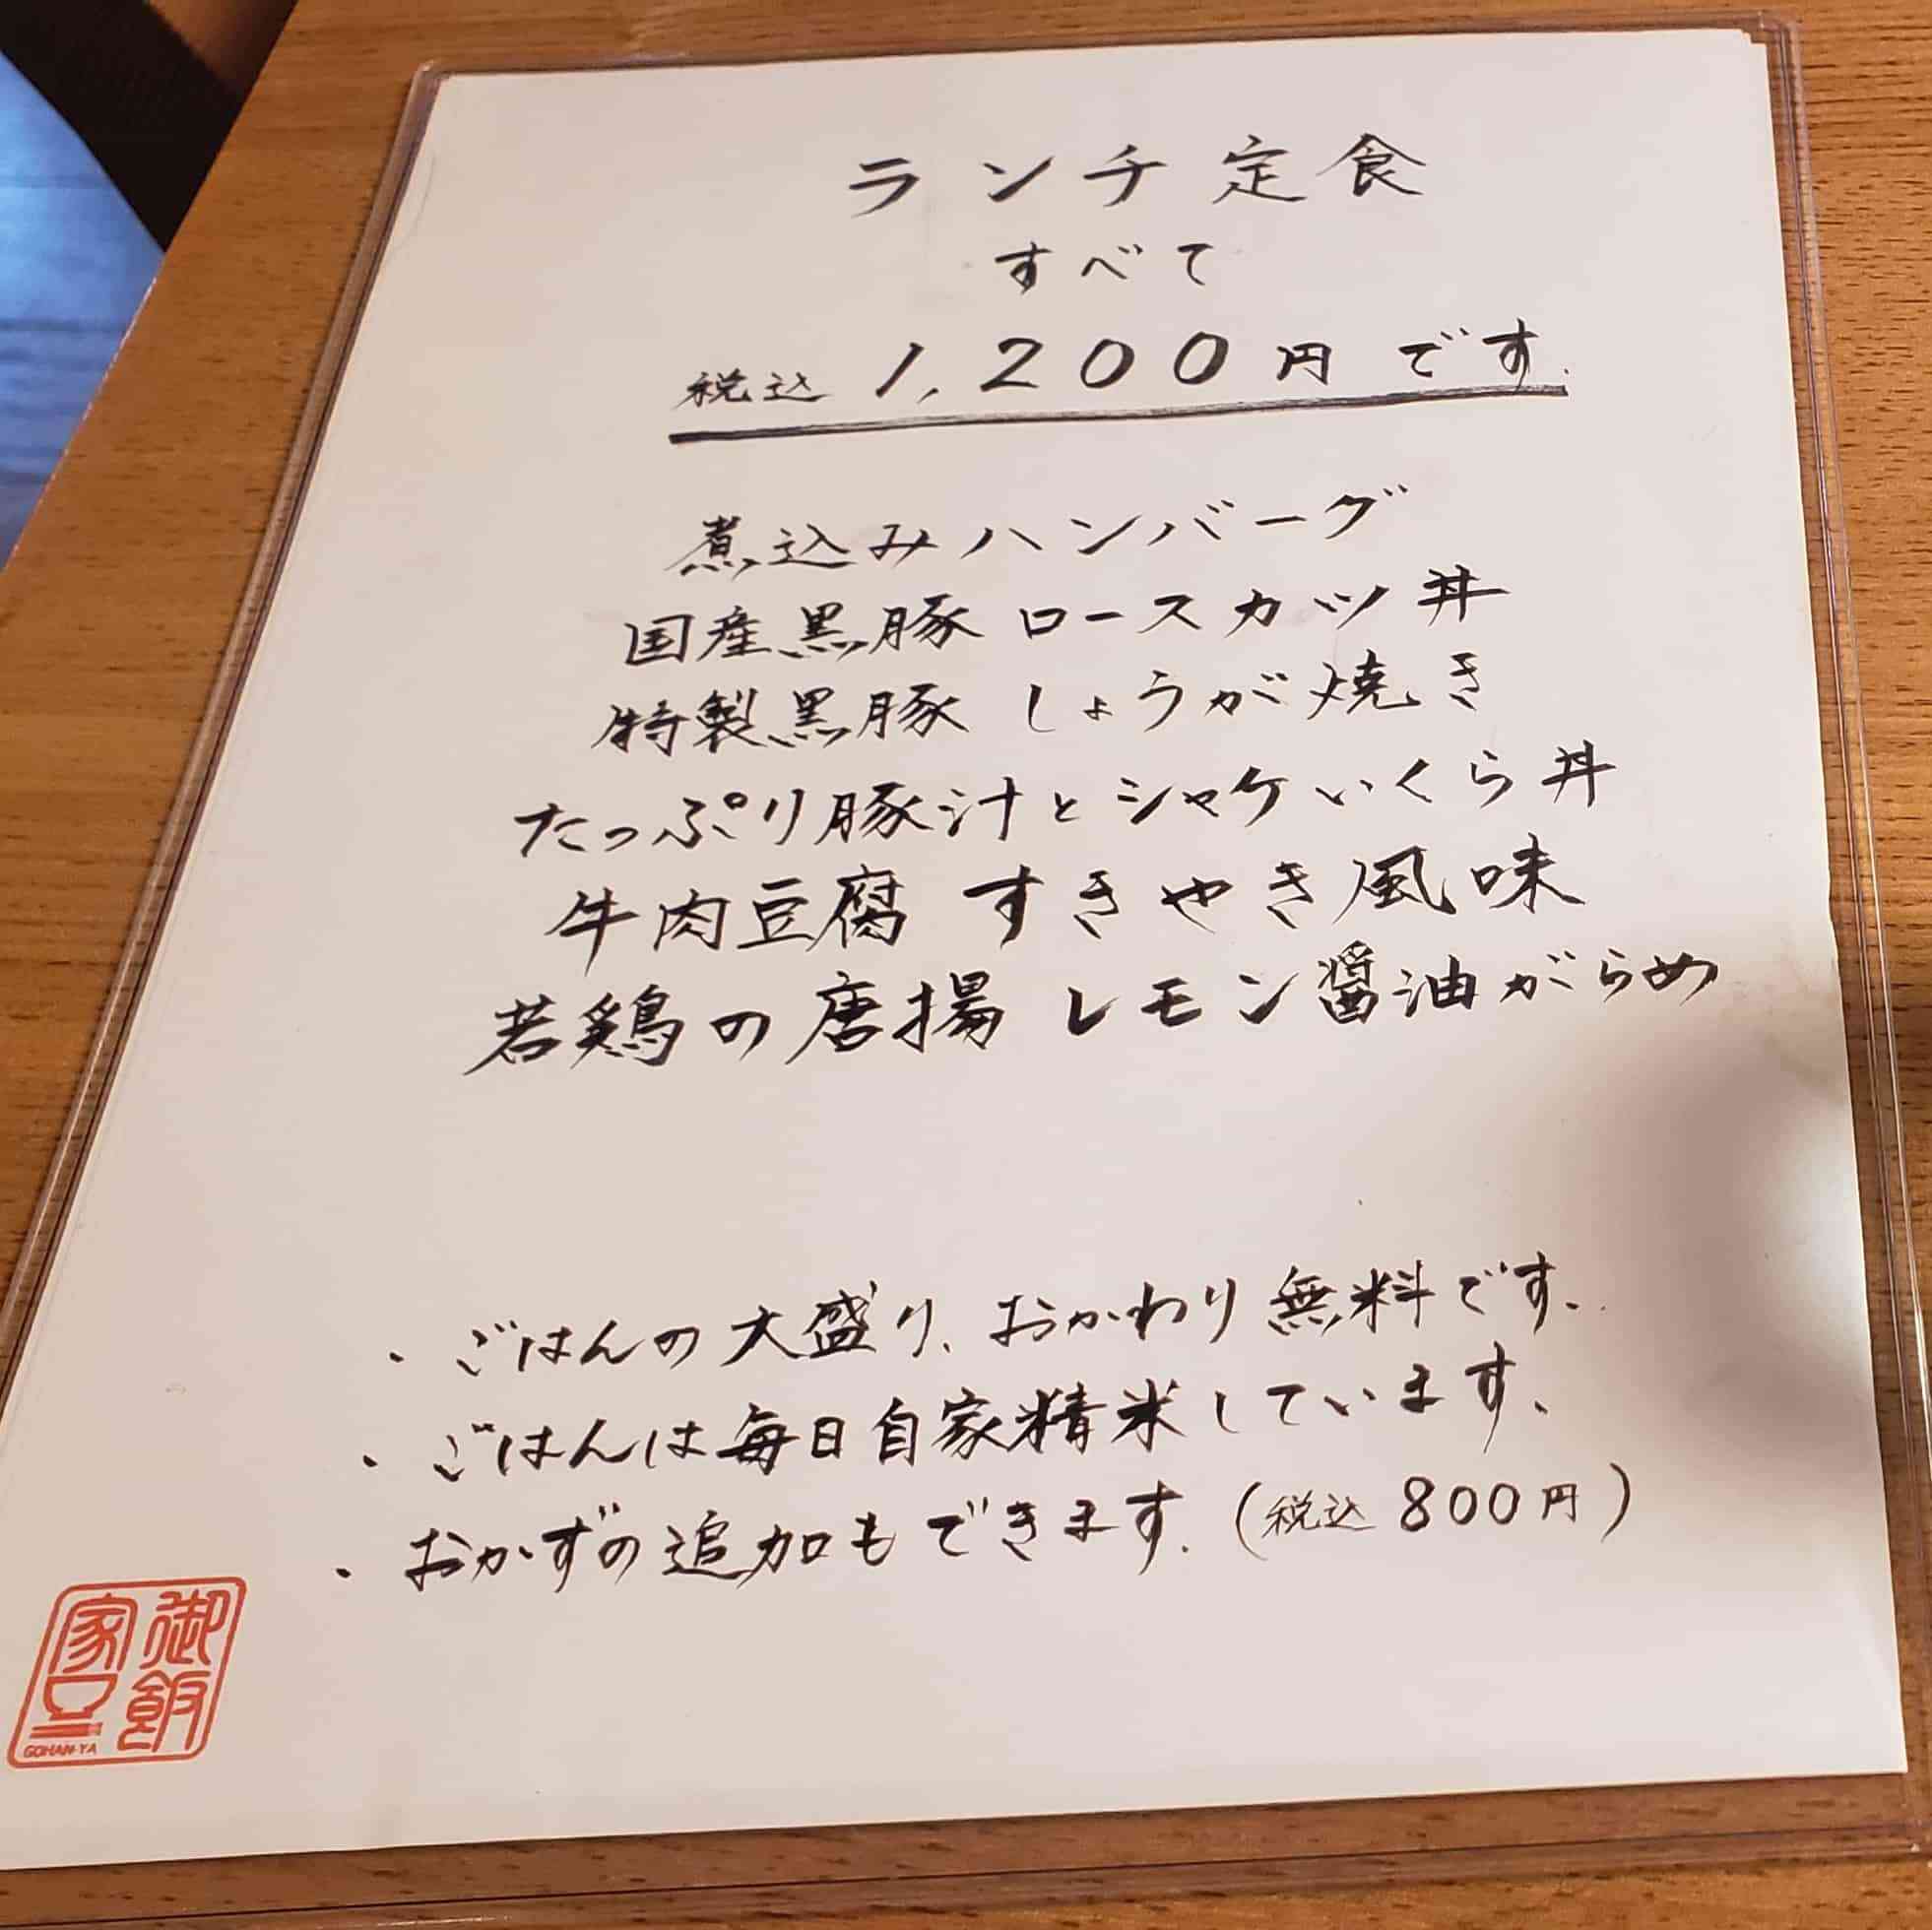 ランチ定食
すべて
税込 1,200円 です.
煮込みハンバーグ
国産黒豚 ロースカツ丼
特製黒豚 しょうが焼き
たっぷり豚汁とシャケいくら丼
牛肉豆腐 すきやき風味
若鶏の唐揚 レモン醤油がらめ
・ごはんの大盛り、おかわり無料です。
・ごはんは毎日自家精米しています、
・おかずの追加もできます.(税込 800円)
御飯
家
GOHAN-YA